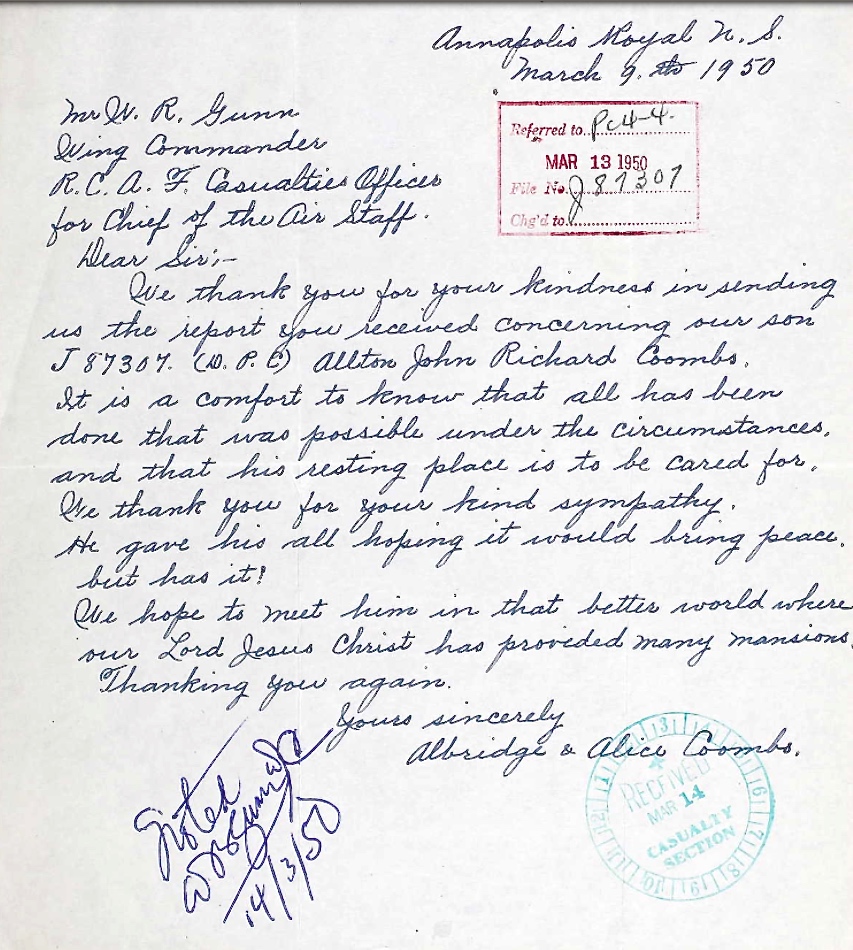 Annapolis Royal N. S.
March 9.th 1950
Mr W. R. Gunn
Wing Commander
R. C. A. F. Casualties Officer
for Chief of the Air Staff.
Dear Sir;-
Referred to Pc4-4.
MAR 13 1950
File No. J 87307
Chg'd to
We thank you for your kindness in sending
us the report you received concerning our son
J 87307. (D. P. C) Allton John Richard Coombs.
It is a comfort to know that all has been
done that was possible under the circumstances,
and that his resting place is to be cared for.
We thank you for your kind sympathy.
He gave his all hoping it would bring peace.
but has it!
We hope to meet him in that better world where
our Lord Jesus Christ has provided many mansions.
Thanking you again.
Yours sincerely
Albridge & Alice Coombs.
Noted
14/3/50
RECEIVED
MAR 14
CASUALTY
SECTION